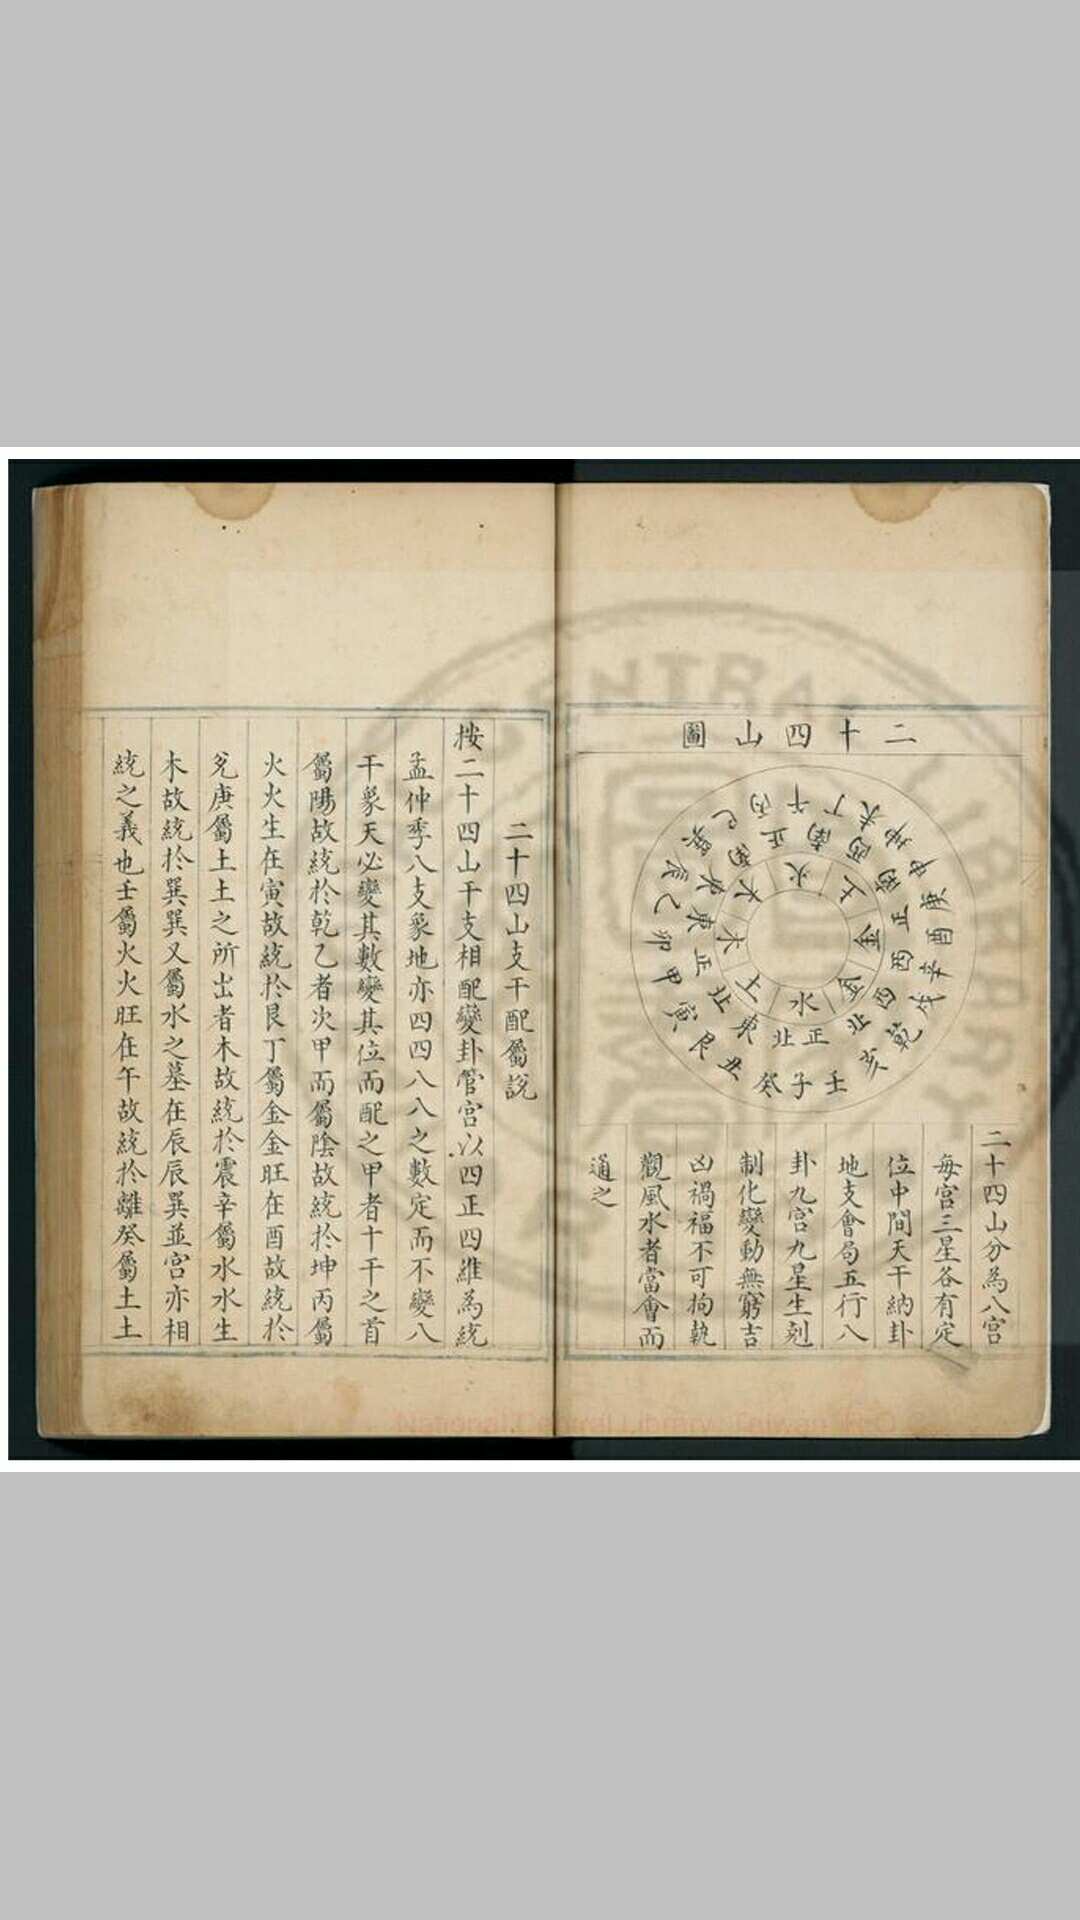 二十四山圖
壬子癸
丑艮寅
甲卯乙
辰巽巳
丙午丁
未坤申
庚酉辛
戌乾亥
正北
東北
正東
東南
正南
西南
正西
西北
水
土
木
木
火
土
金
金
二十四山分為八宮
每宮三星各有定
位中間天干納卦
地支會局五行八
卦九宮九星生剋
制化變動無窮吉
凶禍福不可拘執
觀風水者當會而
通之
二十四山支干配屬說
按二十四山干支相配變卦管宮以四正四維為統
孟仲季八支象地亦四四八八之數定而不變八
干象天必變其數變其位而配之甲者十干之首
屬陽故統於乾乙者次甲而屬陰故統於坤丙屬
火火生在寅故統於艮丁屬金金旺在酉故統於
兌庚屬土土之所出者木故統於震辛屬水水生
木故統於巽巽又屬水之墓在辰辰巽並宮亦相
統之義也壬屬火火旺在午故統於離癸屬土土
National Central Library, Taiwan, R.O.C.